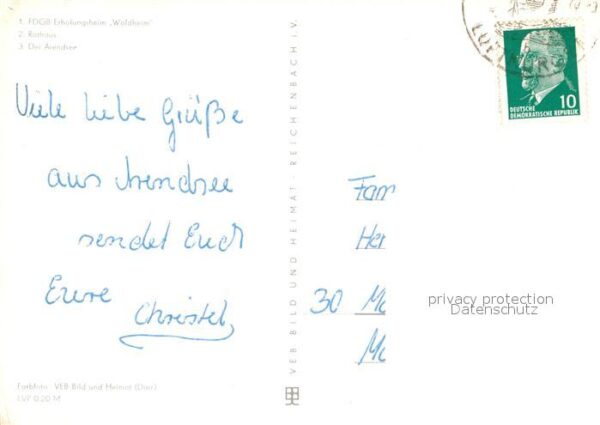 1. FDGB Erholungsheim „Waldheim"
2. Rathaus
3. Der Arendsee
Viele liebe Grüße
aus Arendsee
sendet Euch
Eure
Christel
Farbfoto: VEB Bild und Heimat (Dier)
EVP 0,20 M
VEB BILD UND HEIMAT · REICHENBACH I. V.
10
DEUTSCHE
DEMOKRATISCHE REPUBLIK
Fam
Her
30 Mc
Mc
privacy protection
Datenschutz